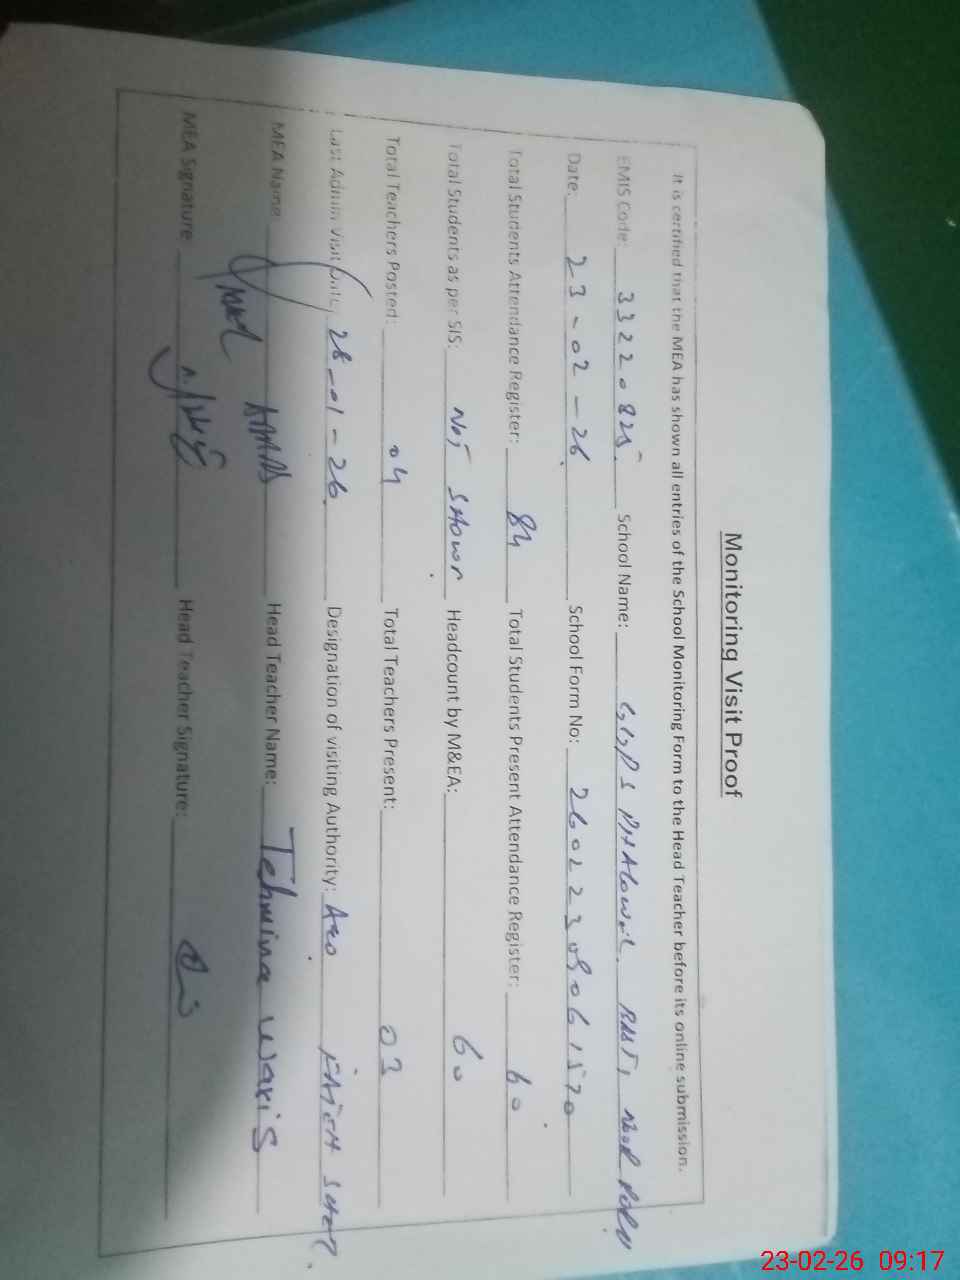 Monitoring Visit Proof
It is certified that the MEA has shown all entries of the School Monitoring Form to the Head Teacher before its online submission.
EMIS Code: 33220825 School Name: GGPS
Date: 23-02-26 School Form No:
Total Students Attendance Register: 84 Total Students Present Attendance Register: 60
Total Students as per SIS: Not SHOWN Headcount by M&EA: 60
Total Teachers Posted: 04 Total Teachers Present: 03
Last Admin Visit Date: 28-01-26 Designation of visiting Authority: AEO
MEA Name Head Teacher Name: Tehmina waris
MEA Signature Head Teacher Signature:
23-02-26 09:17